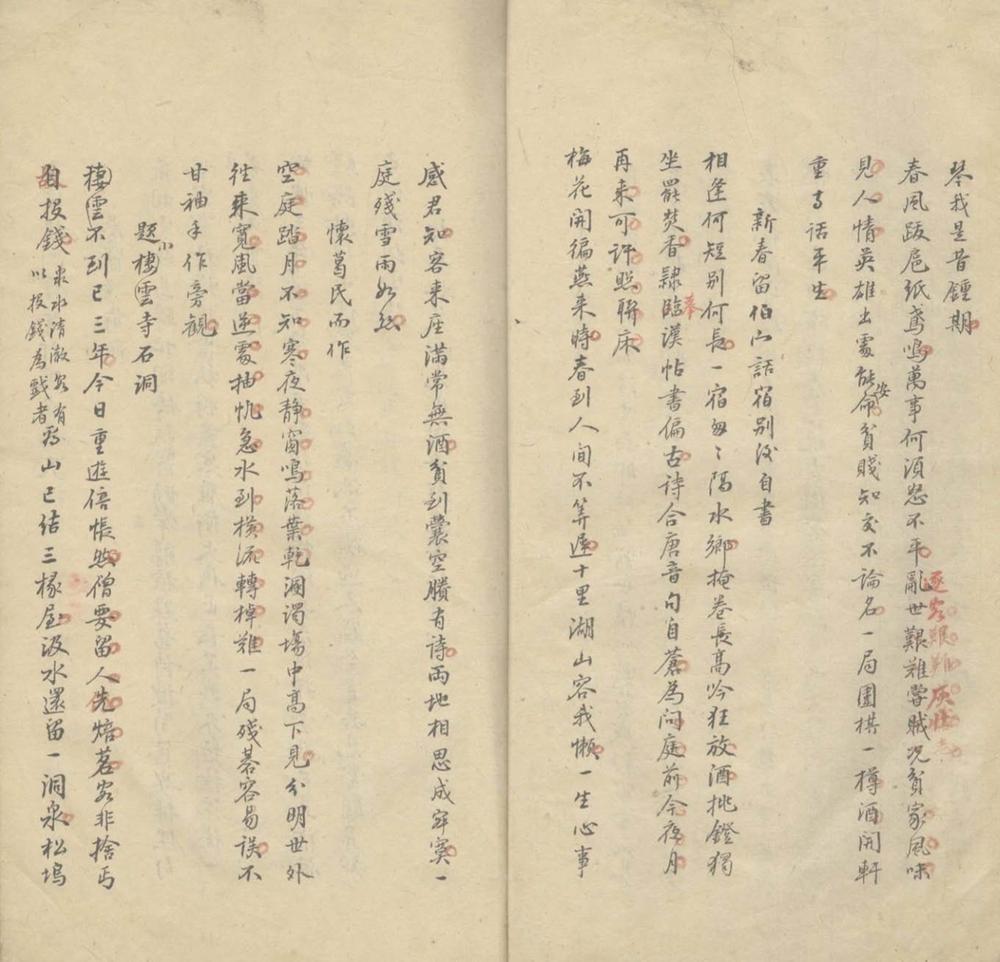 琴我是昔鍾期
春風跋扈紙鳶鳴萬事何須怒不平亂世艱難嘗賊況貧家風味
逐客艱難灰壯志
見人情英雄出處能安命貧賤知交不論名一局圍棋一樽酒開軒
重與話平生
新春留伯山話宿別後自書
相逢何短別何長一宿匆〻隔水鄉掩卷長高吟狂放酒挑鐙獨
坐罷焚香隸臨摹漢帖書偏古詩合唐音句自蒼為問庭前今夜月
再来可許照聯床
梅花開徧燕来時春到人間不算遲十里湖山容我懶一生心事
感君知客来座滿常無酒貧到囊空賸有詩兩地相思成寂寞一
庭殘雪雨如絲
懷葛民而作
空庭踏月不知寒夜静窗鳴落葉乾涸濁場中高下見分明世外
往来寬風當逆處抽帆急水到橫流轉棹難一局殘碁容易誤不
甘袖手作旁觀
題小棲雲寺石洞
棲雲不到已三年今日重遊倍悵然僧要留人先焙茗客非捨丐
故投錢泉水清澈客有以投錢為戲者為山已結三椽屋汲水還留一洞泉松塢